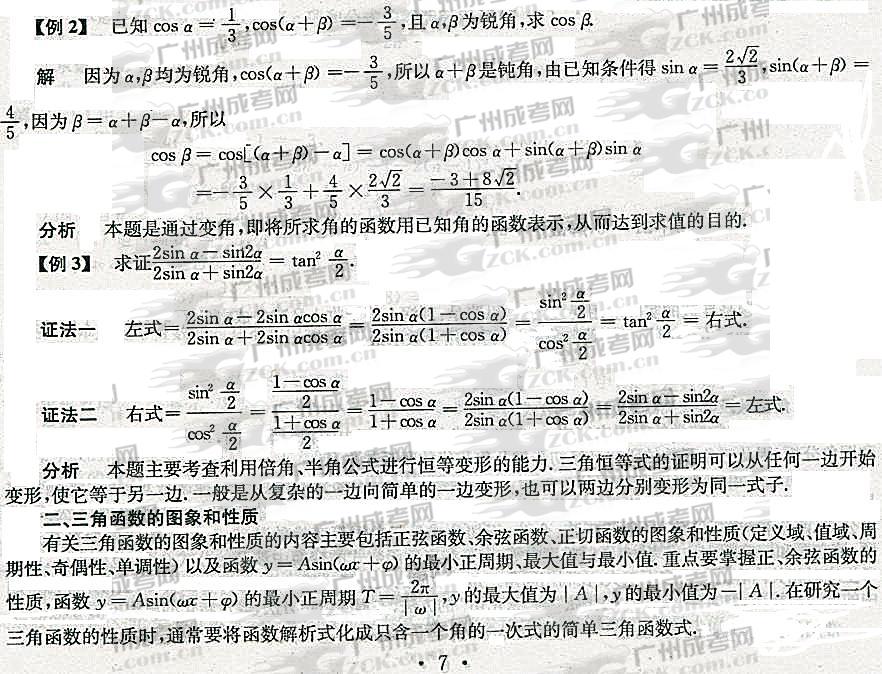 【例 2】 已知 cos α = 1/3, cos(α+β) = -3/5, 且 α,β 为锐角,求 cos β.
解 因为 α,β 均为锐角, cos(α+β) = -3/5, 所以 α+β 是钝角,由已知条件得 sin α = 2√2/3, sin(α+β) =
4/5, 因为 β = α+β-α, 所以
cos β = cos[(α+β)-α] = cos(α+β)cos α + sin(α+β)sin α
= -3/5 × 1/3 + 4/5 × 2√2/3 = (-3+8√2)/15.
分析 本题是通过变角,即将所求角的函数用已知角的函数表示,从而达到求值的目的.
【例 3】 求证 (2sin α - sin2α)/(2sin α + sin2α) = tan² α/2.
证法一 左式 = (2sin α - 2sin αcos α)/(2sin α + 2sin αcos α) = 2sin α(1-cos α)/2sin α(1+cos α) = (sin² α/2)/(cos² α/2) = tan² α/2 = 右式.
证法二 右式 = (sin² α/2)/(cos² α/2) = ((1-cos α)/2)/((1+cos α)/2) = (1-cos α)/(1+cos α) = 2sin α(1-cos α)/2sin α(1+cos α) = (2sin α - sin2α)/(2sin α + sin2α) = 左式.
分析 本题主要考查利用倍角、半角公式进行恒等变形的能力. 三角恒等式的证明可以从任何一边开始
变形,使它等于另一边. 一般是从复杂的一边向简单的一边变形,也可以两边分别变形为同一式子.
二、三角函数的图象和性质
有关三角函数的图象和性质的内容主要包括正弦函数、余弦函数、正切函数的图象和性质(定义域、值域、周
期性、奇偶性、单调性) 以及函数 y = Asin(ωx+φ) 的最小正周期、最大值与最小值. 重点要掌握正、余弦函数的
性质,函数 y = Asin(ωx+φ) 的最小正周期 T = 2π/|ω|, y 的最大值为 |A|, y 的最小值为 -|A|. 在研究一个
三角函数的性质时,通常要将函数解析式化成只含一个角的一次式的简单三角函数式.
· 7 ·
广州成考网
GZCK.com.cn